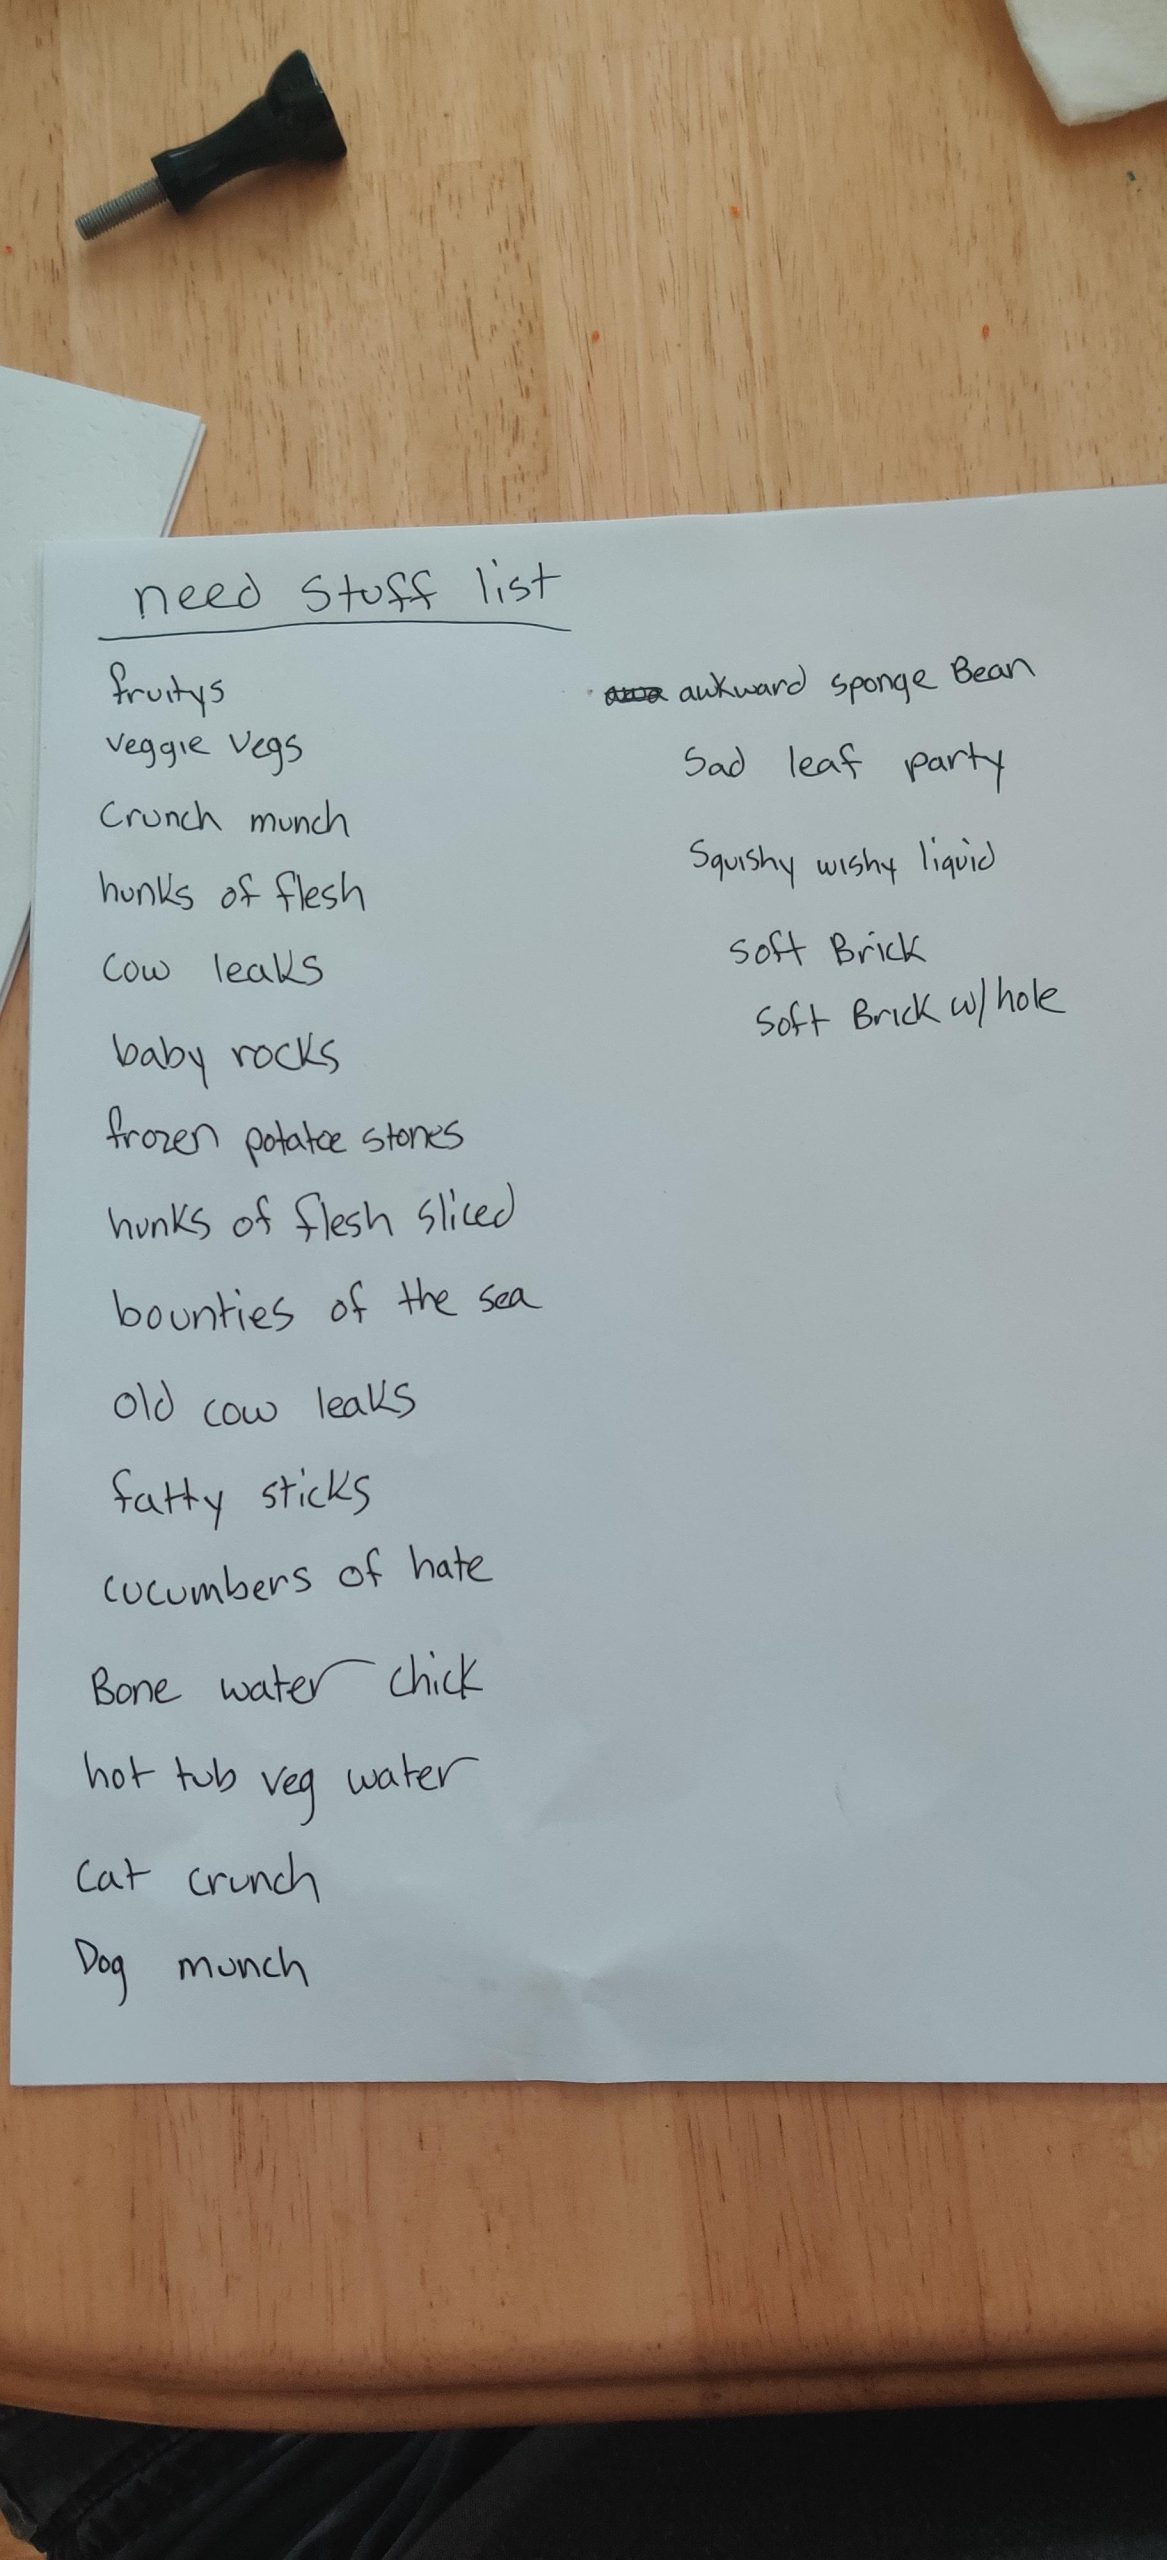 need stuff list
fruitys
veggie vegs
Crunch munch
hunks of flesh
Cow leaks
baby rocks
frozen potatoe stones
hunks of flesh sliced
bounties of the sea
old cow leaks
fatty sticks
cucumbers of hate
Bone water chick
hot tub veg water
Cat crunch
Dog munch
awkward sponge Bean
Sad leaf party
Squishy wishy liquid
Soft Brick
Soft Brick w/ hole